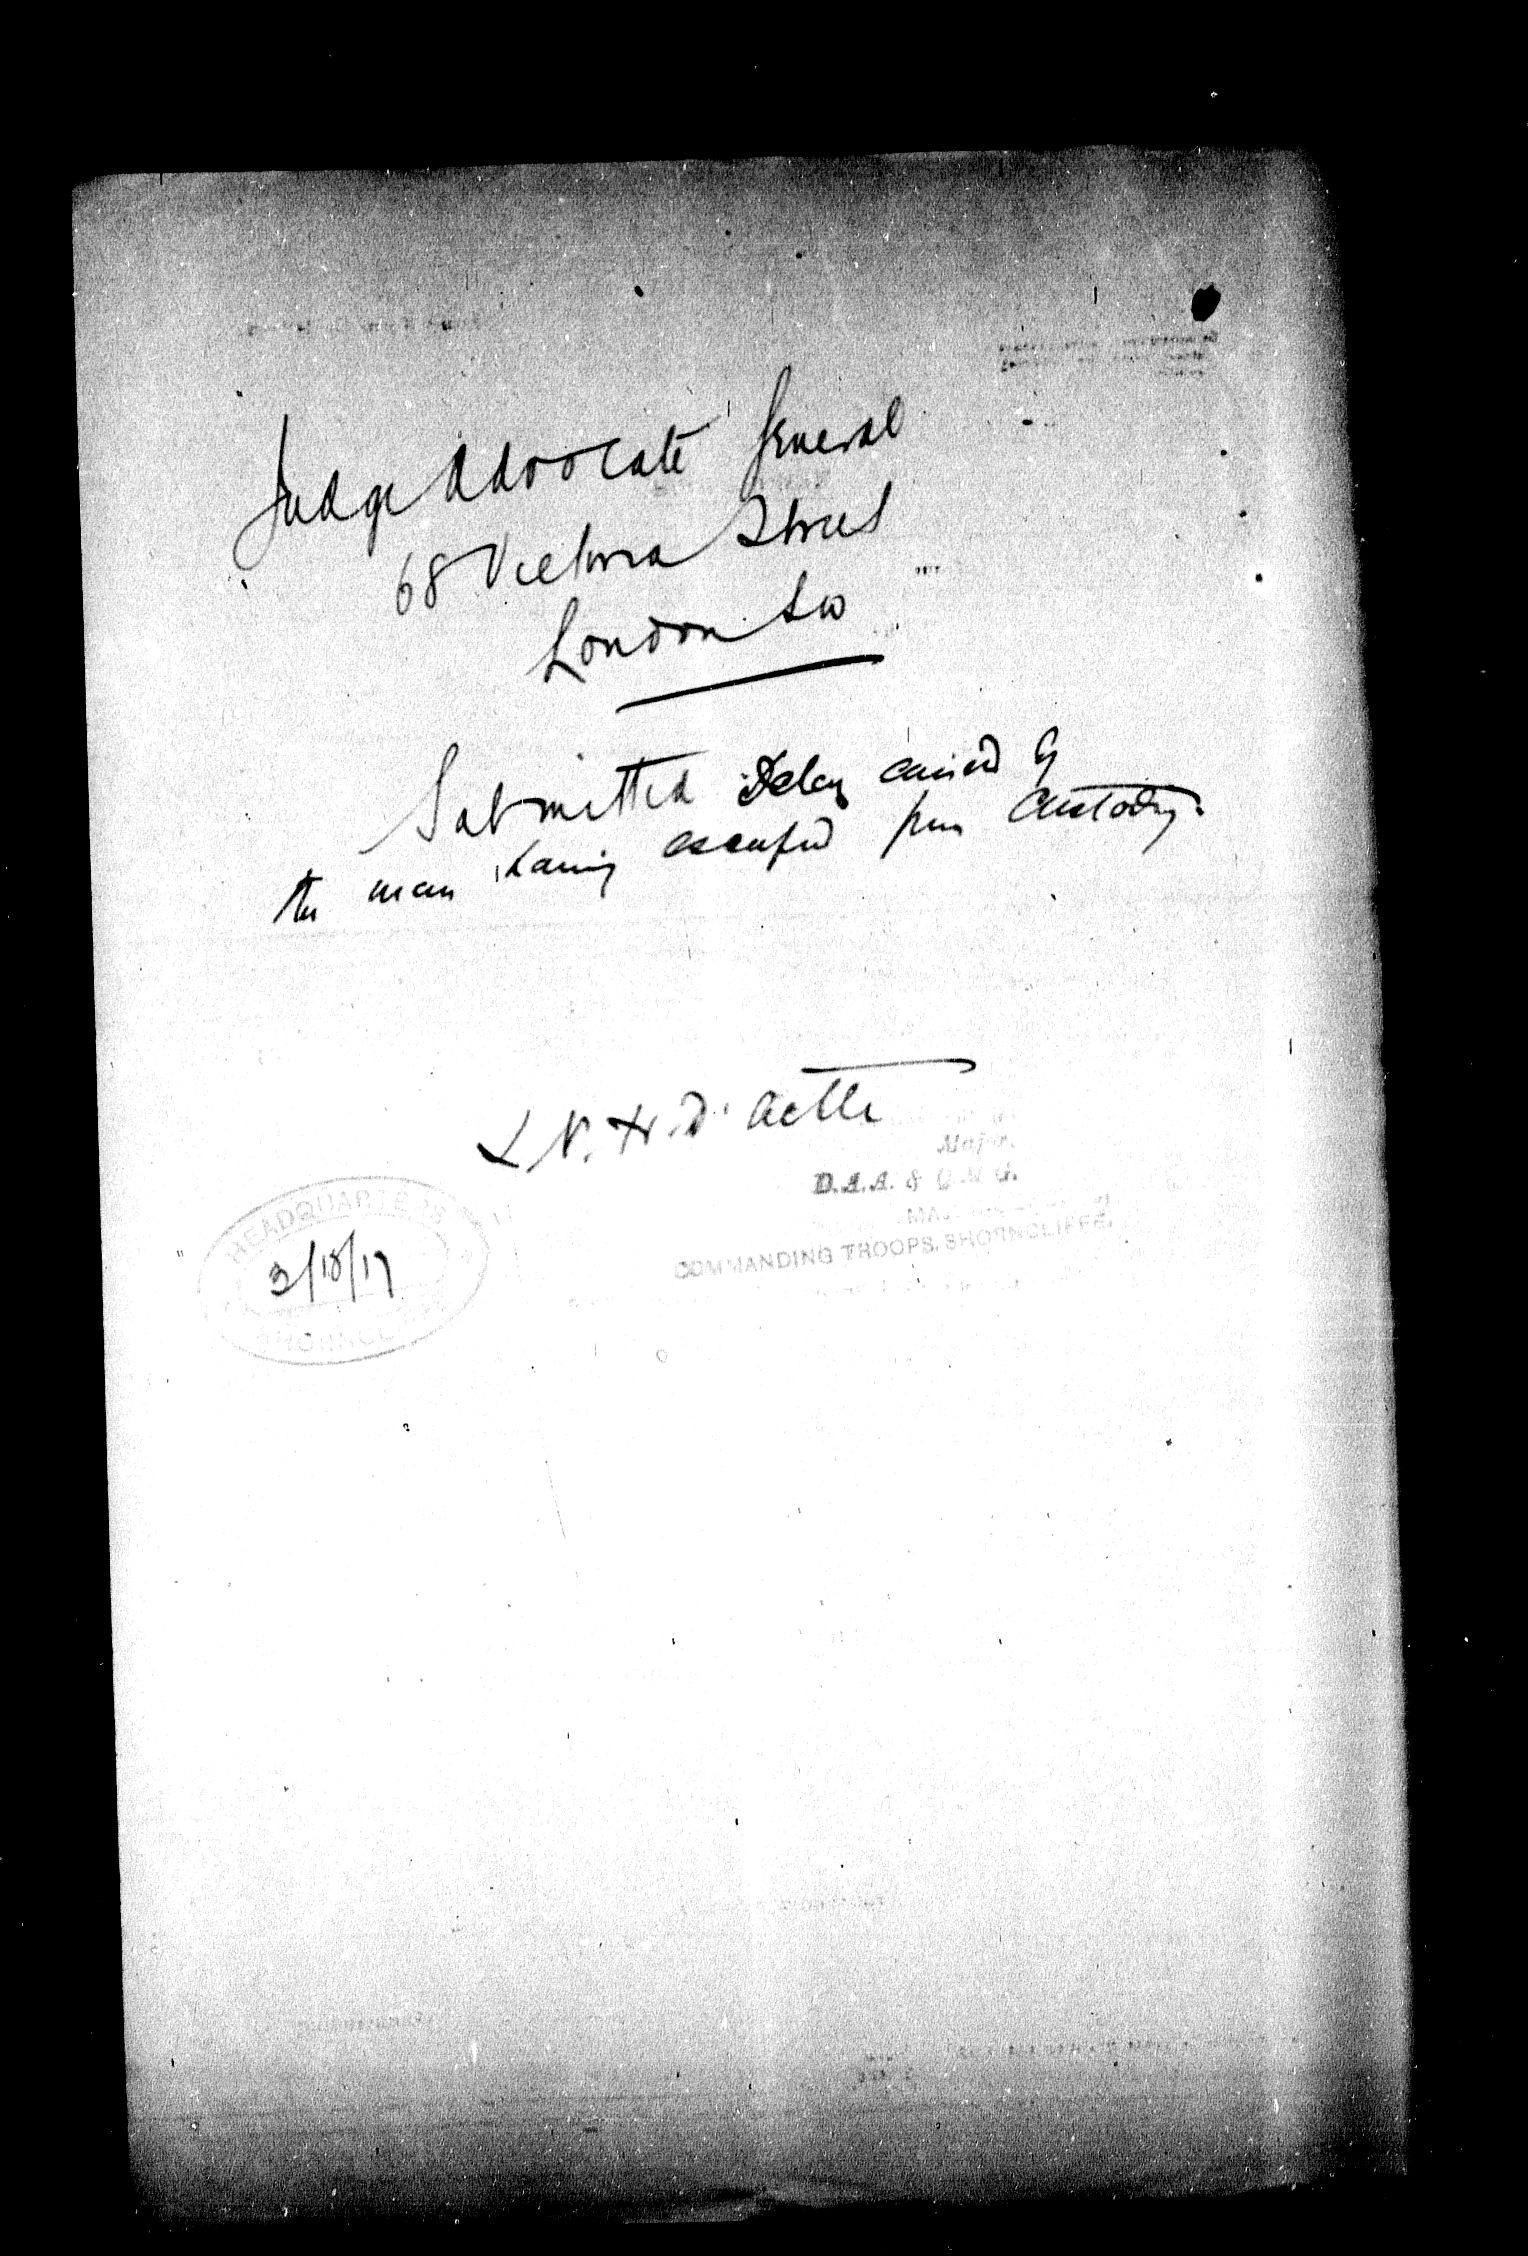 Judge Advocate General
68 Victoria Street
London SW
Submitted Delay caused by
the man having escaped from Custody.
Major.
D.A.A. & Q.M.G.
COMMANDING TROOPS, SHORNCLIFFE.
HEADQUARTERS
3/10/17
SHORNCLIFFE